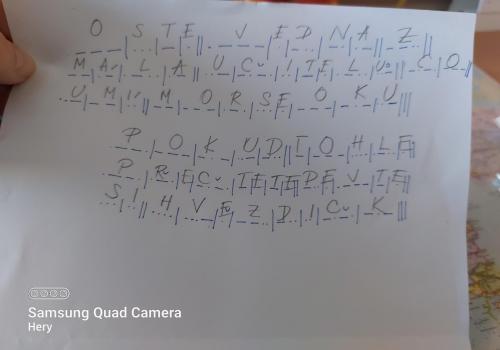 O S T E V E D N A Z
M Á L A U Č I T E L Ů C O
U M Í M O R S E O K U
P O K U D T O H L E
P Ř E Č T E T E D E V T E
S I H V Ě Z D I Č K
Samsung Quad Camera
Hery